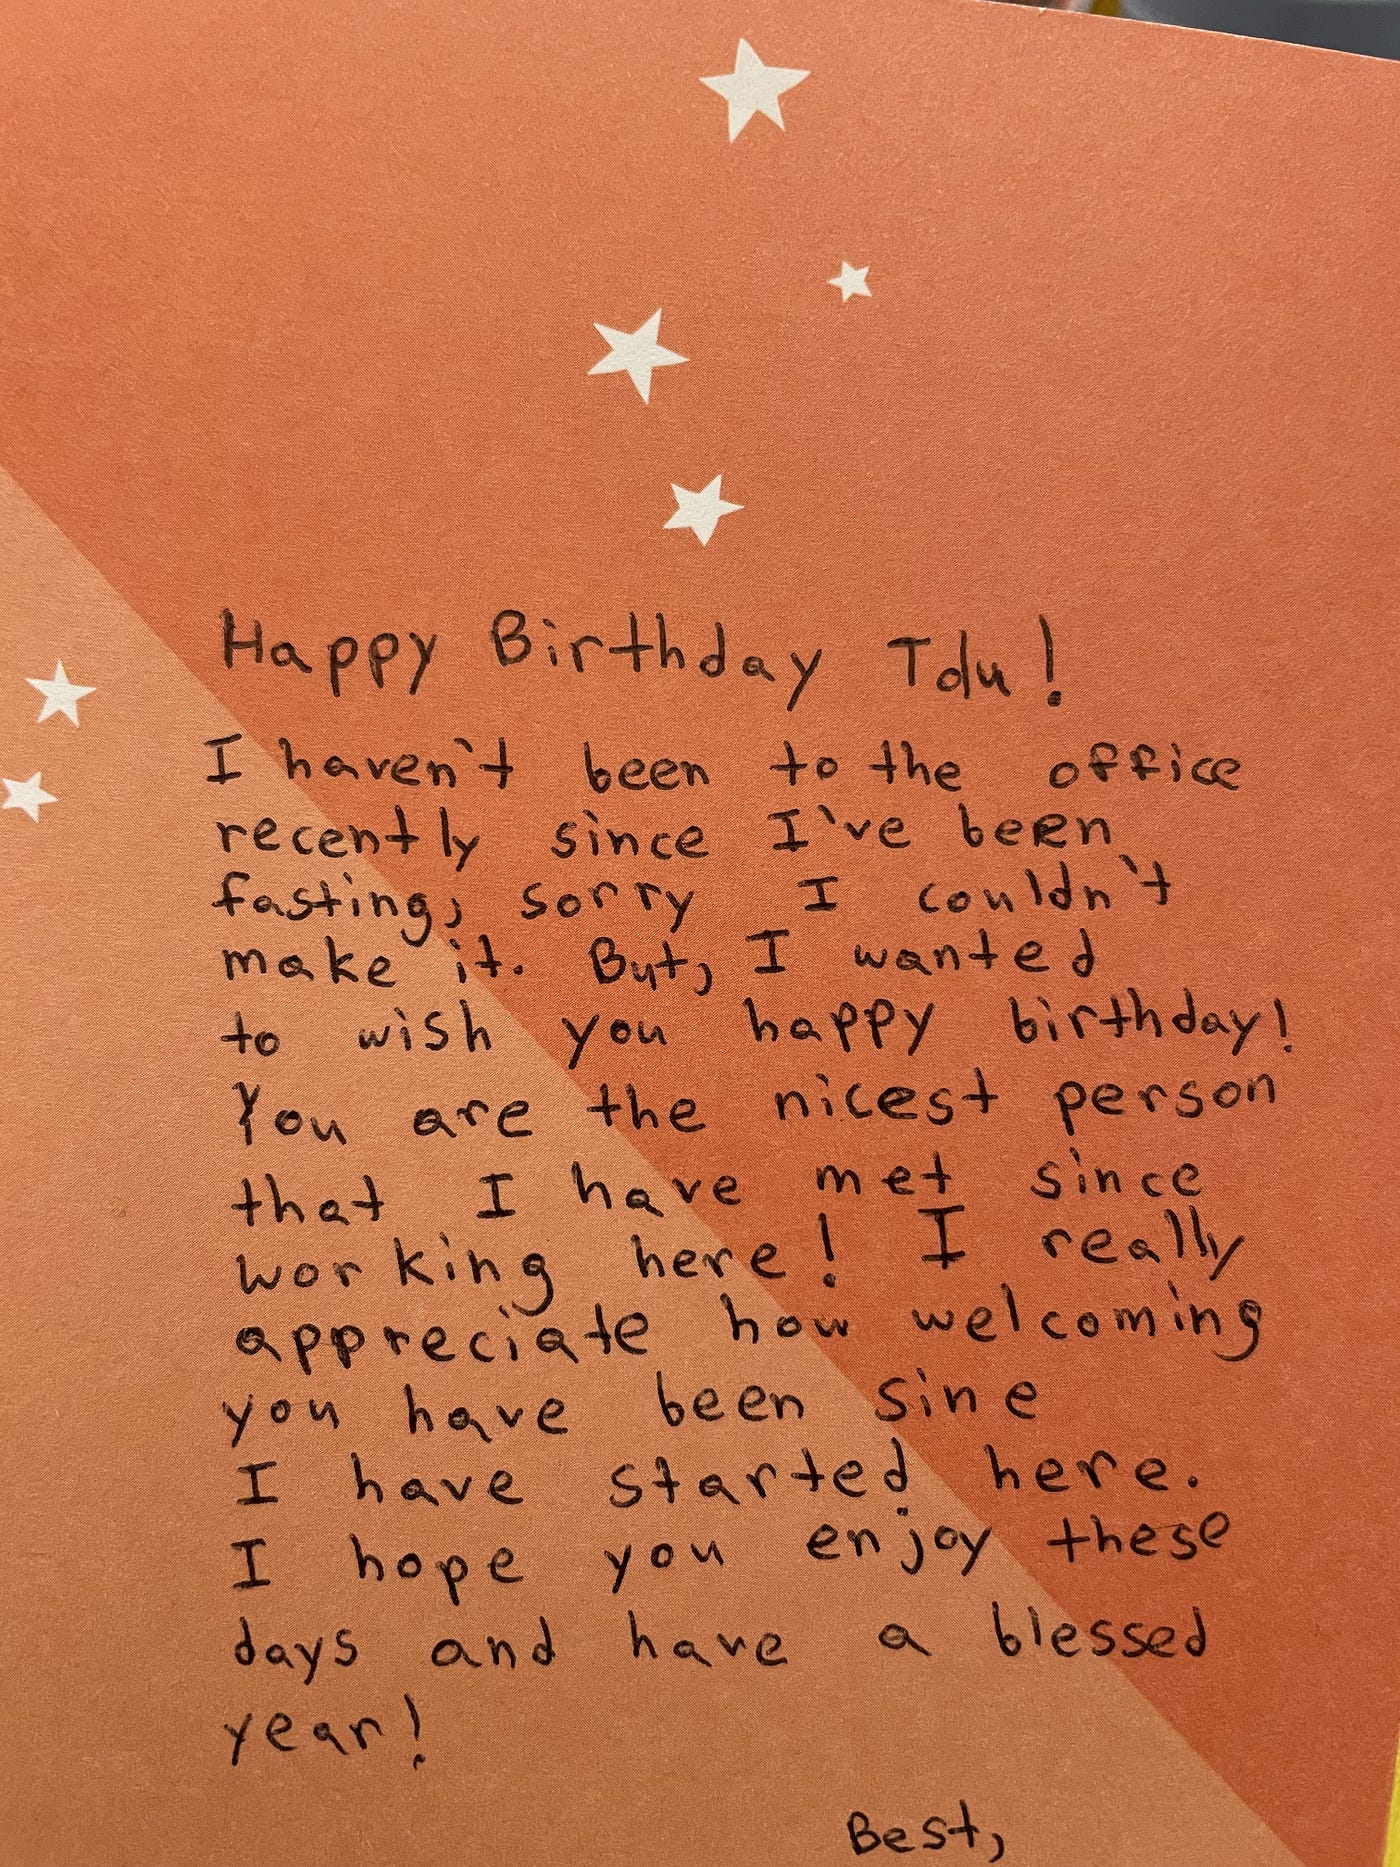 Happy Birthday Tdu!
I haven't been to the office
recently since I've been
fasting, sorry I couldn't
make it. But, I wanted
to wish you happy birthday!
You are the nicest person
that I have met since
working here! I really
appreciate how welcoming
you have been sine
I have started here.
I hope you enjoy these
days and have a blessed
year!
Best,